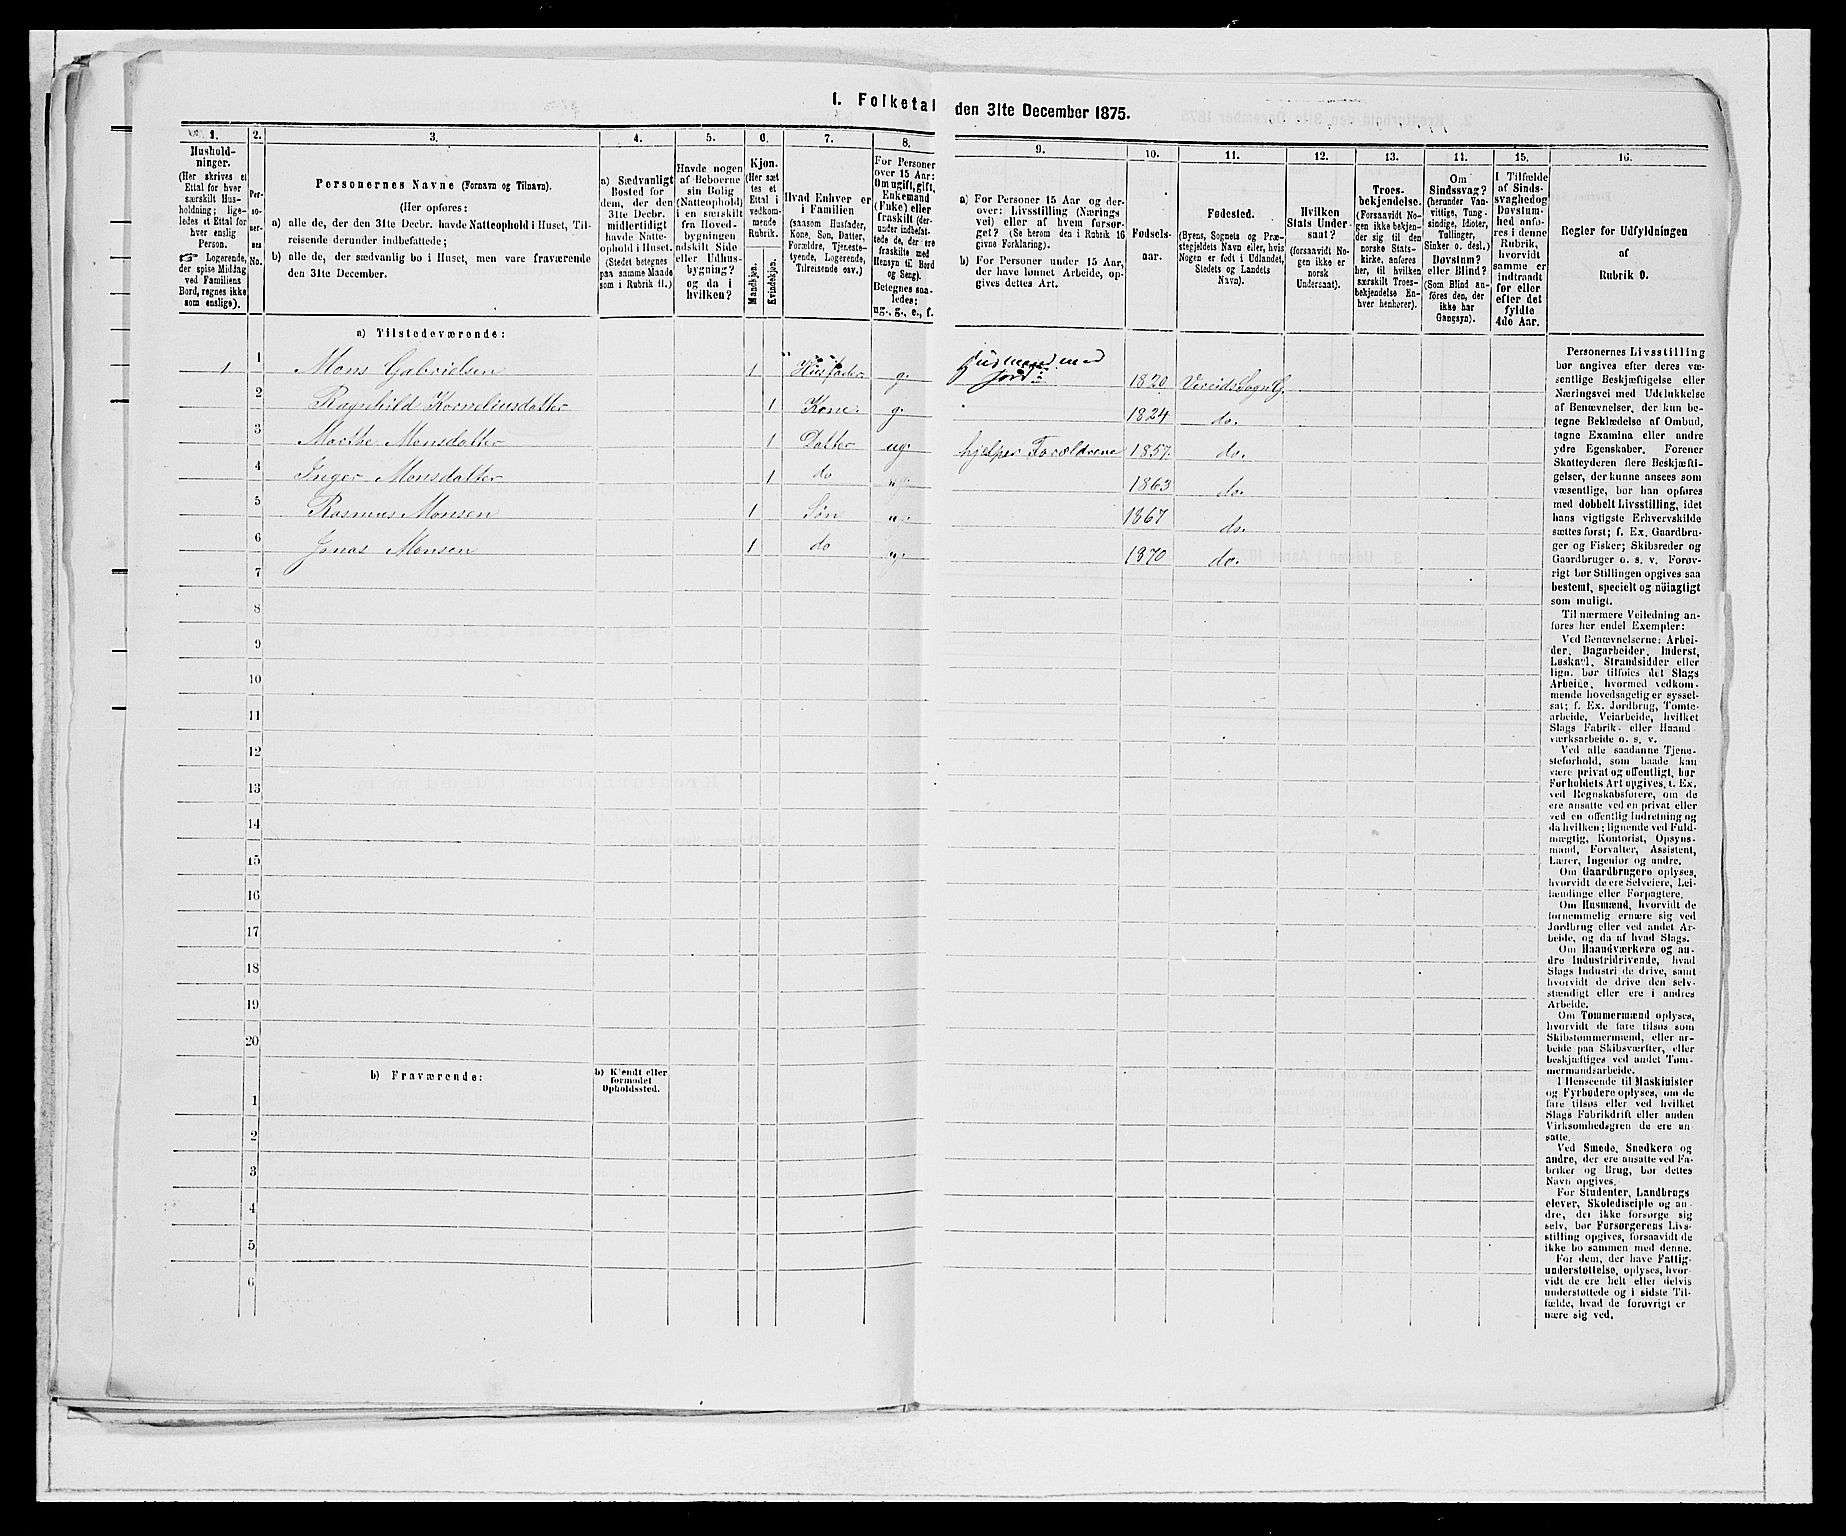 I. Folketal den 31te December 1875.
1. 2. 3. 4. 5. 6. 7. 8. 9. 10. 11. 12. 13. 14. 15. 16.
Hushold-
ninger.
(Her skrives et
Ettal for hver
særskilt Hus-
holdning; lige-
ledes et Ettal for
hver enslig
Person.
☞ Logerende,
der spise Middag
ved Familiens
Bord, regnes ikke
som enslige).
Per-
so-
ner-
nes
No.
Personernes Navne (Fornavn og Tilnavn).
(Her opføres:
a) alle de, der den 31te Decbr. havde Natteophold i Huset, Til-
reisende derunder indbefattede;
b) alle de, der sædvanlig bo i Huset, men vare fraværende
den 31te December.
a) Sædvanligt
Bosted for
dem, der den
31te Decbr.
midlertidigt
havde Natte-
ophold i Huset.
(Stedet betegnes
paa samme Maade
som i Rubrik 11.)
Havde nogen
af Beboerne
sin Bolig
(Natteophold)
i en særskilt
fra Hoved-
bygningen
adskilt Side
eller Udhus-
bygning?
og da i
hvilken?
Kjøn.
(Her sæt
tes et
Ettal i
vedkom-
mende
Rubrik.
Mandkjøn.
Kvindekjøn.
Hvad Enhver er
i Familien
(saasom Husfader,
Kone, Søn, Datter,
Forældre, Tjeneste-
tyende, Logerende,
Tilreisende osv.)
For Personer
over 15 Aar:
Om ugift, gift,
Enkemand
(Enke) eller
fraskilt (der-
under indbefat-
tede de, der ere
fraskilte med
Hensyn til Bord
og Seng).
Betegnes saa-
ledes:
ug., g., e., f.
a) For Personer 15 Aar og der-
over: Livsstilling (Nærings
vei) eller af hvem forsør-
get? (Se herom den i Rubrik 16
givne Forklaring).
b) For Personer under 15 Aar,
der have lønnet Arbeide, op-
gives dettes Art.
Fødsels-
aar.
Fødested.
(Byens, Sognets og Præ-
stegjeldets Navn eller, hvis
Nogen er født i Udlandet,
Stedets og Landets
Navn).
Hvilken
Stats Under
saat?
(forsaavidt No-
gen ikke er
norsk
Undersaat).
Troes-
bekjendelse.
(Forsaavidt No-
gen ikke bekjen-
der sig til den
norske Stats-
kirke, anføres
her, til hvilken
særskilt Troes-
bekjendelse En-
hver henhører).
Om
Sindssvag?
(herunder Van-
vittige, Tung-
sindige, Idioter,
Tullinger,
Sinker o. desl.)
Døvstum?
eller Blind?
(Som Blind an-
føres den, der
ikke har
Gangsyn).
I Tilfælde
af Sinds-
svaghed og
Døvstum-
hed anfø-
res i denne
Rubrik,
hvorvidt
samme er
indtraadt
før eller
efter det
fyldte
4de Aar.
Regler for Udfyldningen
af
Rubrik 9.
a) Tilstedeværende:
1 1 Mons Gabrielsen 1 Husfader g. Husmand med Jord 1820 Vereids Sogn G.
2 Ragnhild Korneliusdatter 1 Kone. g. 1824 do.
3 Marthe Monsdatter 1 Datter ug. hjelper Forældrene 1857. do.
4 Inger Monsdatter 1 do ug. 1863 do.
5 Rasmus Monsen 1 Søn ug. 1867 do.
6 Jonas Monsen 1 do ug. 1870 do.
7
8
9
10
11
12
13
14
15
16
17
18
19
20
b) Fraværende:
b) Kjendt eller
formodet
Opholdssted.
1
2
3
4
5
6
Personernes Livsstilling
bør angives efter deres væ-
sentlige Beskjæftigelse eller
Næringsvei med Udelukkelse
af Benævnelser, der kun be-
tegne Beklædelse af Ombud,
tagne Examina eller andre
ydre Egenskaber. Forener
Skatteyderen flere Beskjæfti-
gelser, der kunne ansees som
væsentlige, bør han opføres
med dobbelt Livsstilling, idet
hans vigtigste Erhvervskilde
sættes først; f. Ex. Gaardbru-
ger og Fisker; Skibsreder og
Gaardbruger o. s. v. Forøv-
rigt bør Stillingen opgives saa
bestemt, specielt og nøiagtigt
som muligt.
Til nærmere Veiledning an-
føres her endel Exempler:
Ved Benævnelserne: Arbei-
der, Dagarbeider, Inderst,
Løskarl, Strandsidder eller
lign. bør tilføies det Slags
Arbeide, hvormed vedkom-
mende hovedsagelig er syssel-
sat; f. Ex. Jordbrug, Tomte-
arbeide, Veiarbeide, hvilket
Slags Fabrik- eller Haand
værksarbeide o. s. v.
Ved alle saadanne Tjene-
steforhold, som baade kan
være privat og offentligt, bør
Forholdets Art opgives, f. Ex.
ved Regnskabsførere, om de
ere ansatte ved en privat eller
ved en offentlig Indretning og
da hvilken; lignende ved Fuld-
mægtig, Kontorist, Opsyns-
mand, Forvalter, Assistent,
Lærer, Ingeniør og andre.
Om Gaardbrugere oplyses,
hvorvidt de ere Selveiere, Lei-
lændinge eller Forpagtere.
Om Husmænd, hvorvidt de
fornemmelig ernære sig ved
Jordbrug eller ved andet Ar-
beide, og da af hvad Slags.
Om Haandværkere og an-
dre Industridrivende, hvad
Slags Industri de drive, samt
hvorvidt de drive den selv-
stændigt eller ere i andres
Arbeide.
Om Tømmermænd oplyses,
hvorvidt de fare tilsøs som
Skibstømmermænd, eller ar-
beide paa Skibsværfter, eller
beskjæftiges ved andet Tøm-
mermandsarbeide.
I Henseende til Maskinister
og Fyrbødere oplyses, om de
fare tilsøs eller ved hvilket
Slags Fabrikdrift eller anden
Virksomhedsgren de ere an-
satte.
Ved Smede, Snedkere og
andre, der ere ansatte ved Fa-
briker og Brug, bør dettes
Navn opgives.
For Studenter, Landbrugs
elever, Skoledisciple og an-
dre, der ikke forsørge sig
selv, bør Forsørgerens Livs-
stilling opgives, forsaavidt de
ikke bo sammen med denne.
For dem, der have Fattig-
understøttelse, oplyses, hvor-
vidt de ere helt eller delvis
understøttede og i sidste Til-
fælde, hvad de forøvrigt er
nære sig ved.